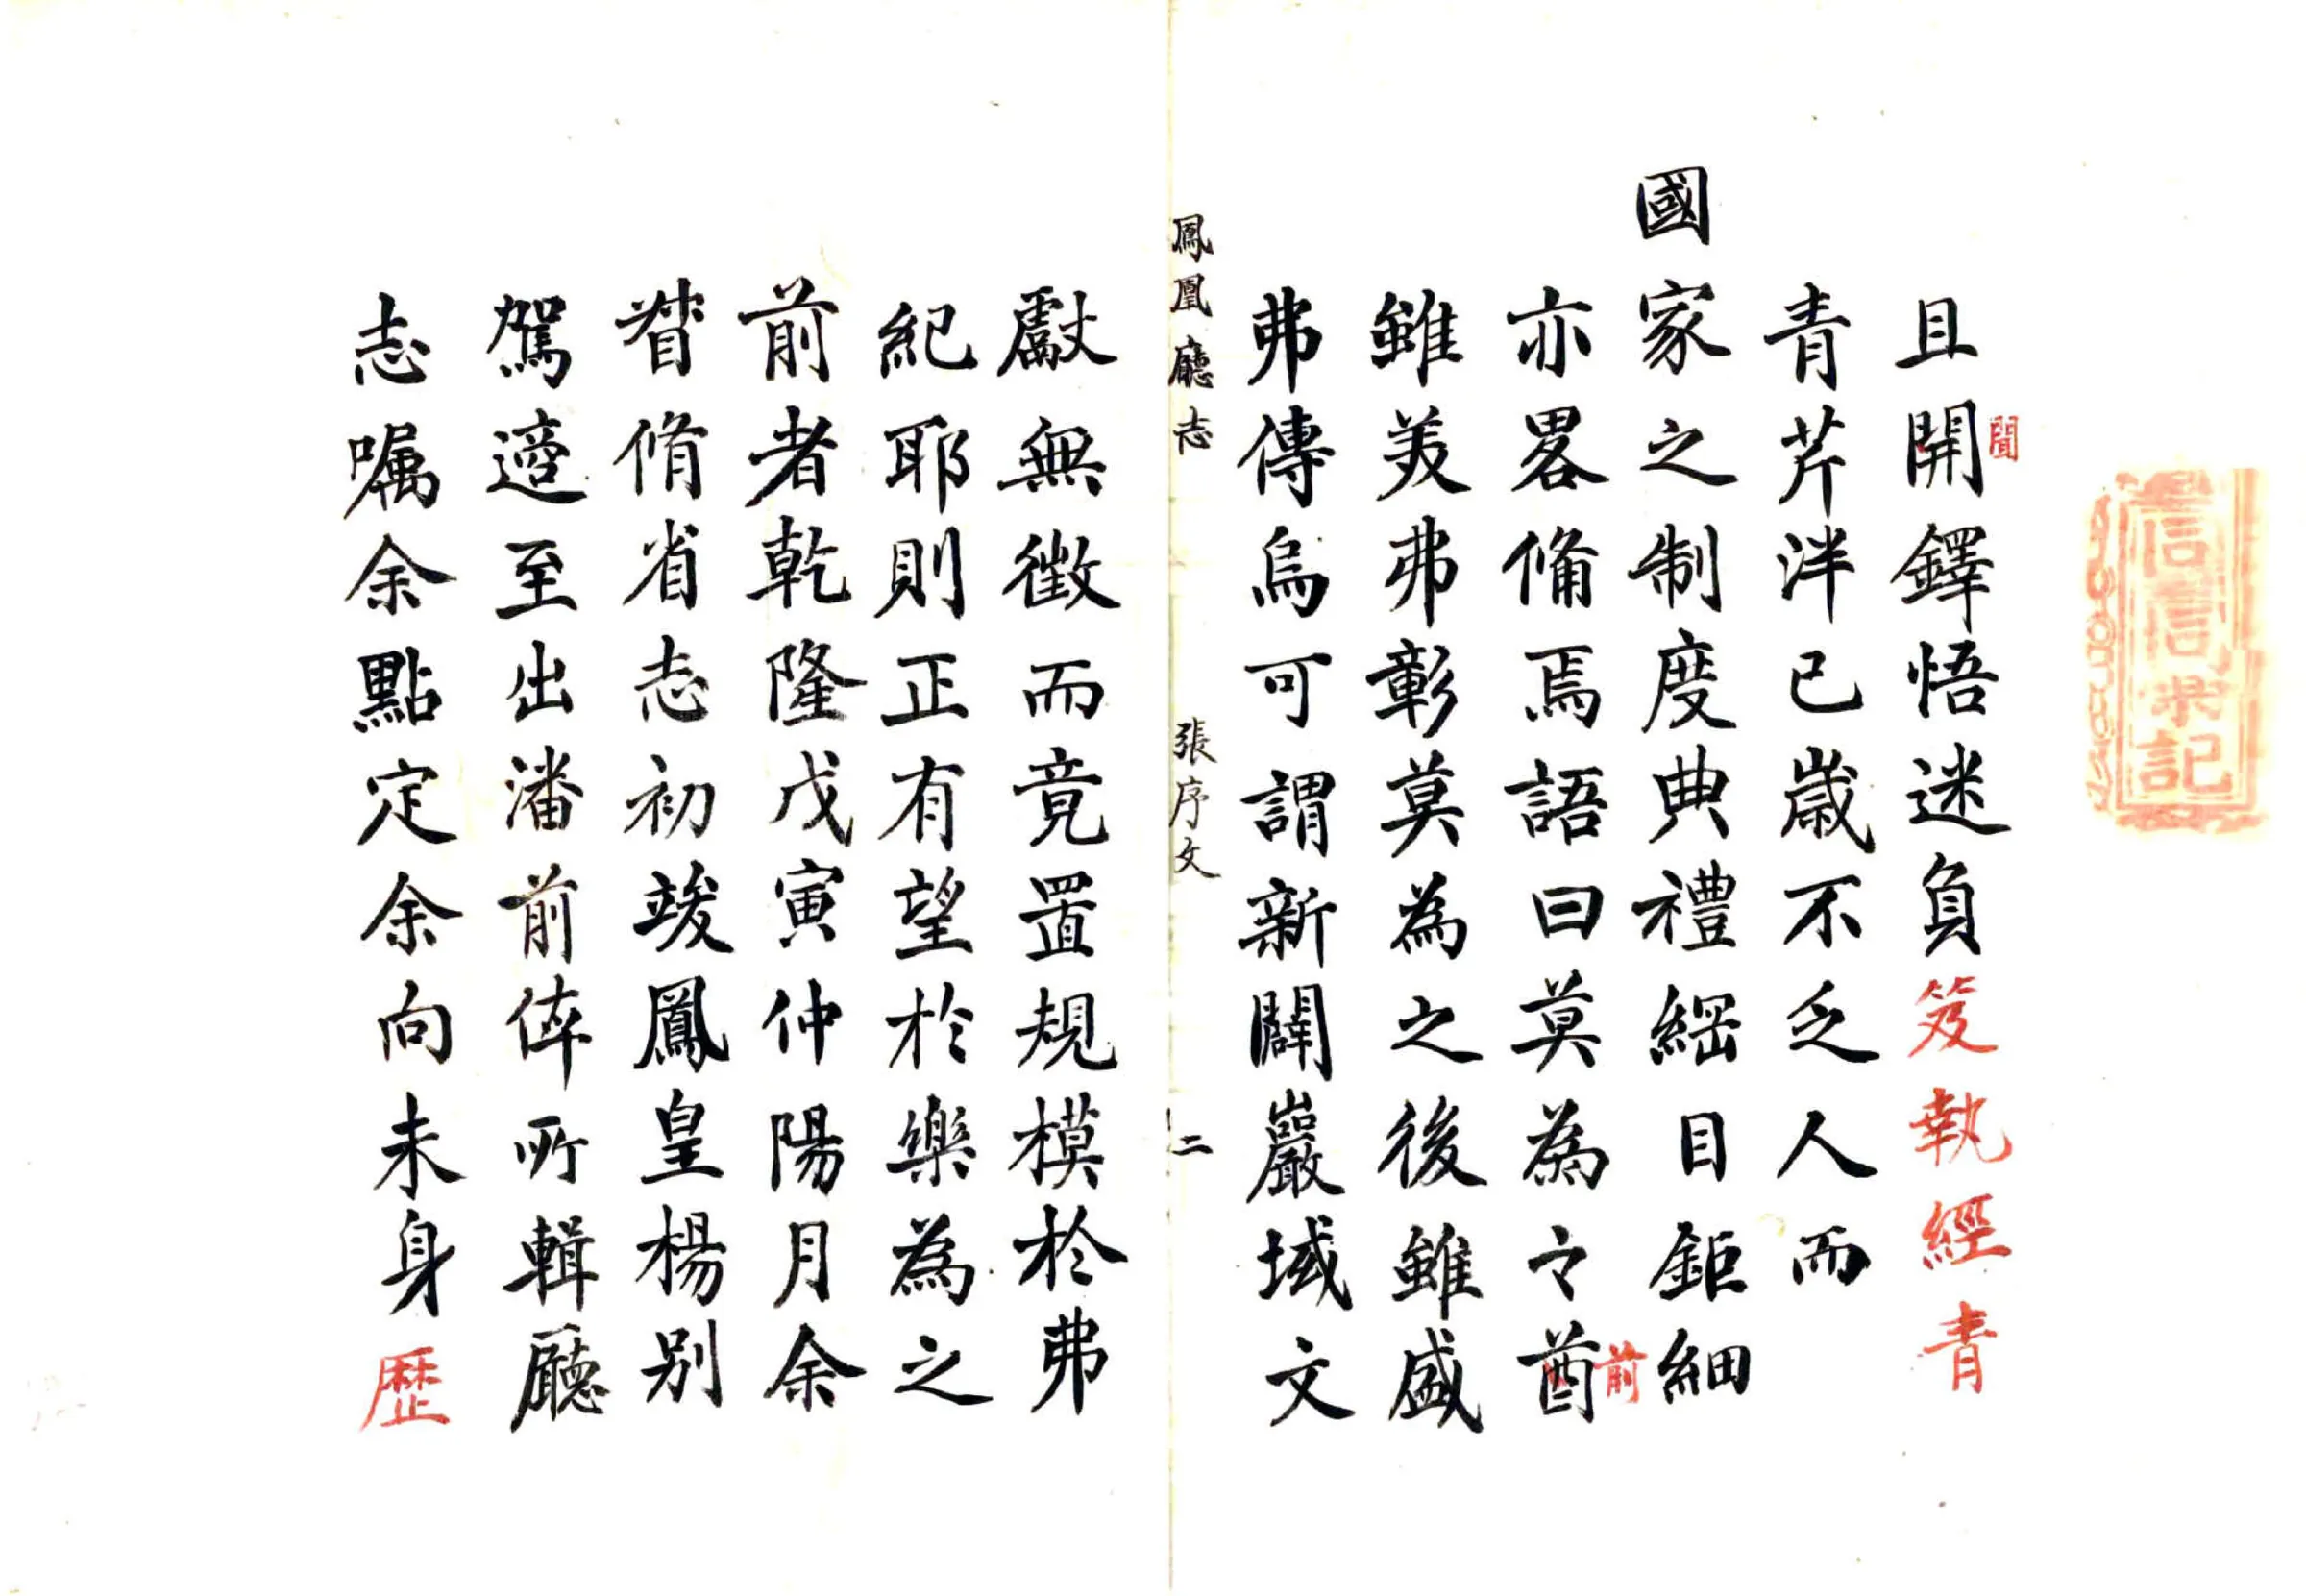 且開鐸悟迷負笈執經青
聞
青芹泮已歲不乏人而
國家之制度典禮綱目鉅細
亦畧備焉語曰莫為之酋
前
雖美弗彰莫為之後雖盛
弗傳烏可謂新闢巖域文
鳳凰廳志 張序文 二
獻無徵而竟置規模於弗
紀耶則正有望於樂為之
前者乾隆戊寅仲陽月余
督脩省志初竣鳳皇楊別
駕遊至出潘前倅所輯廳
志嘱余點定余向未身歷
記